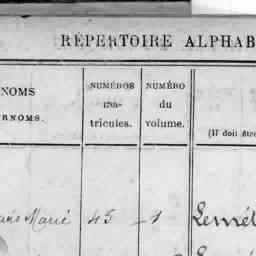 RÉPERTOIRE ALPHAB
NOMS
RNOMS.
NUMÉROS
ma-
tricules.
NUMÉRO
du
volume.
(Il doit être
Marie 45 1 Lemél